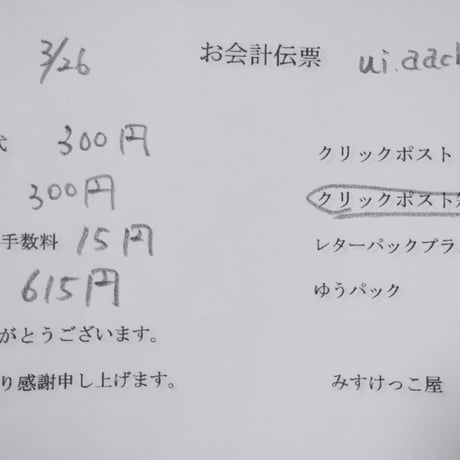 3/26 お会計伝票 ui.aach
代 300円 クリックポスト
300円 クリックポスト
手数料 15円 レターパックプラ
615円 ゆうパック
がとうございます。
り感謝申し上げます。 みすけっこ屋